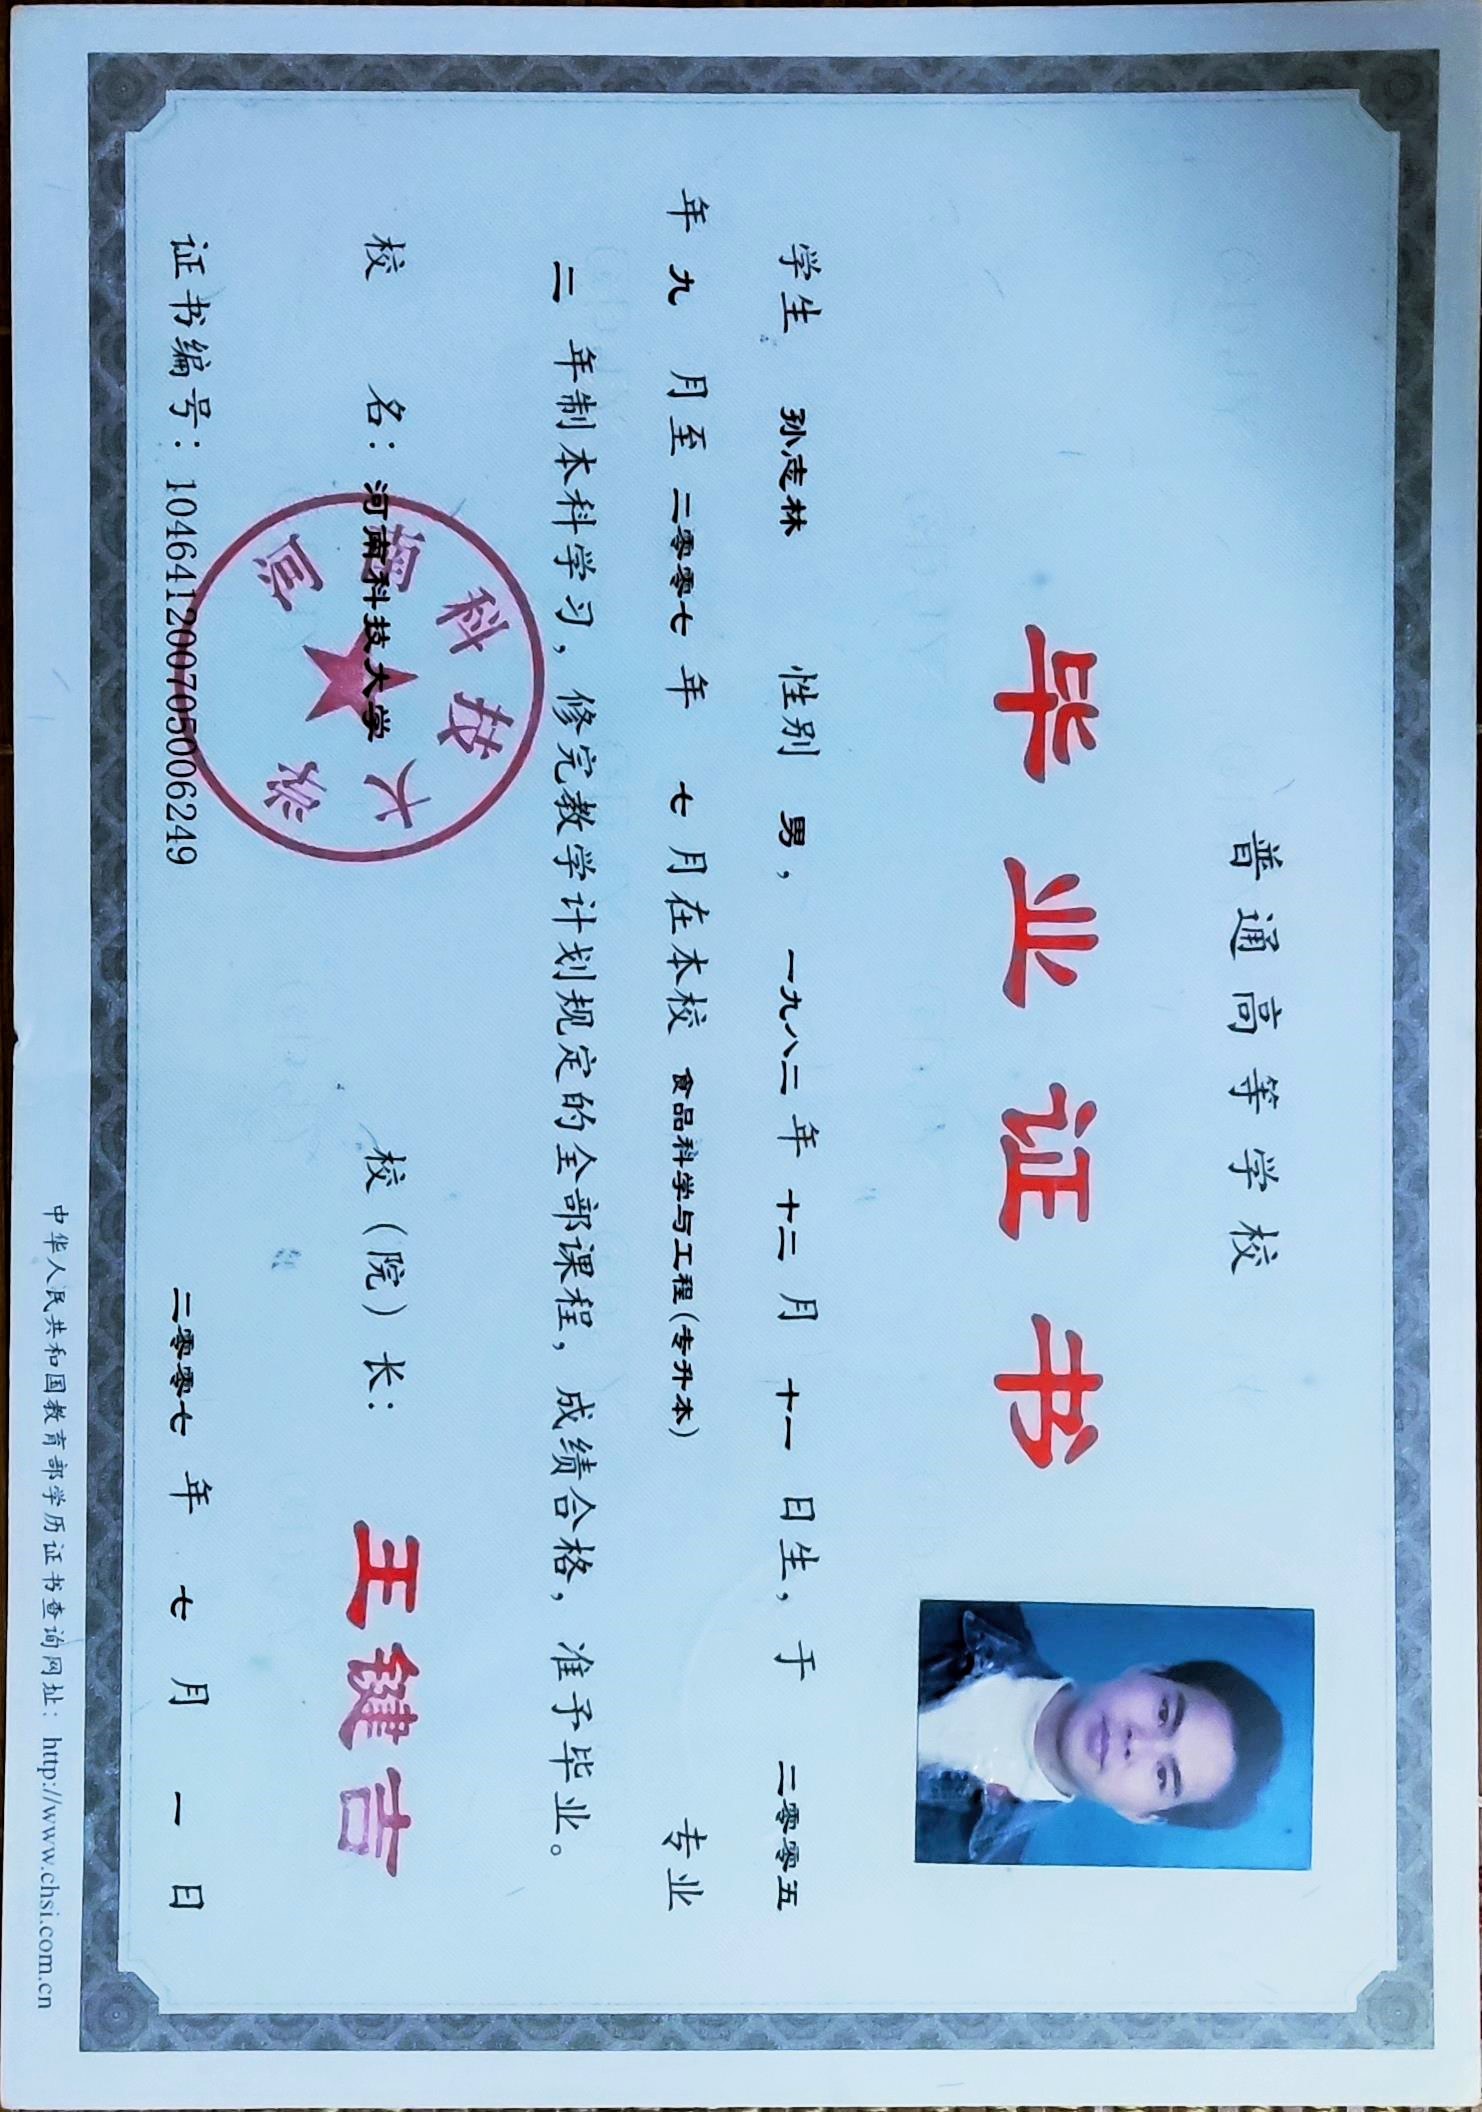 普通高等学校
毕业证书
学生 孙志林 性别 男，一九八二 年 十二 月 十一 日生，于 二零零五
年 九 月至 二零零七 年 七 月在本校 食品科学与工程(专升本) 专业
二 年制本科学习，修完教学计划规定的全部课程，成绩合格，准予毕业。
校 名：河南科技大学 校（院）长： 王键吉
河南科技大学
证书编号：104641200705006249 二零零七 年 七 月 一 日
中华人民共和国教育部学历证书查询网址：http://www.chsi.com.cn